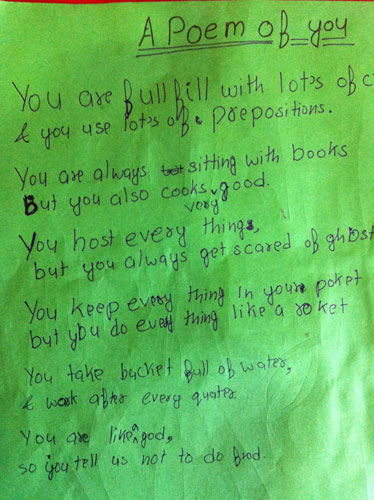 A Poem of you
You are full fill with lot's of c
& you use lot's of prepositions.
You are always sitting with books
But you also cooks very good.
You host every things,
but you always get scared of ghost
You keep every thing in your poket
but you do every thing like a roket
You take bucket full of water,
& work after every quater
You are like a god,
so you tell us not to do frod.